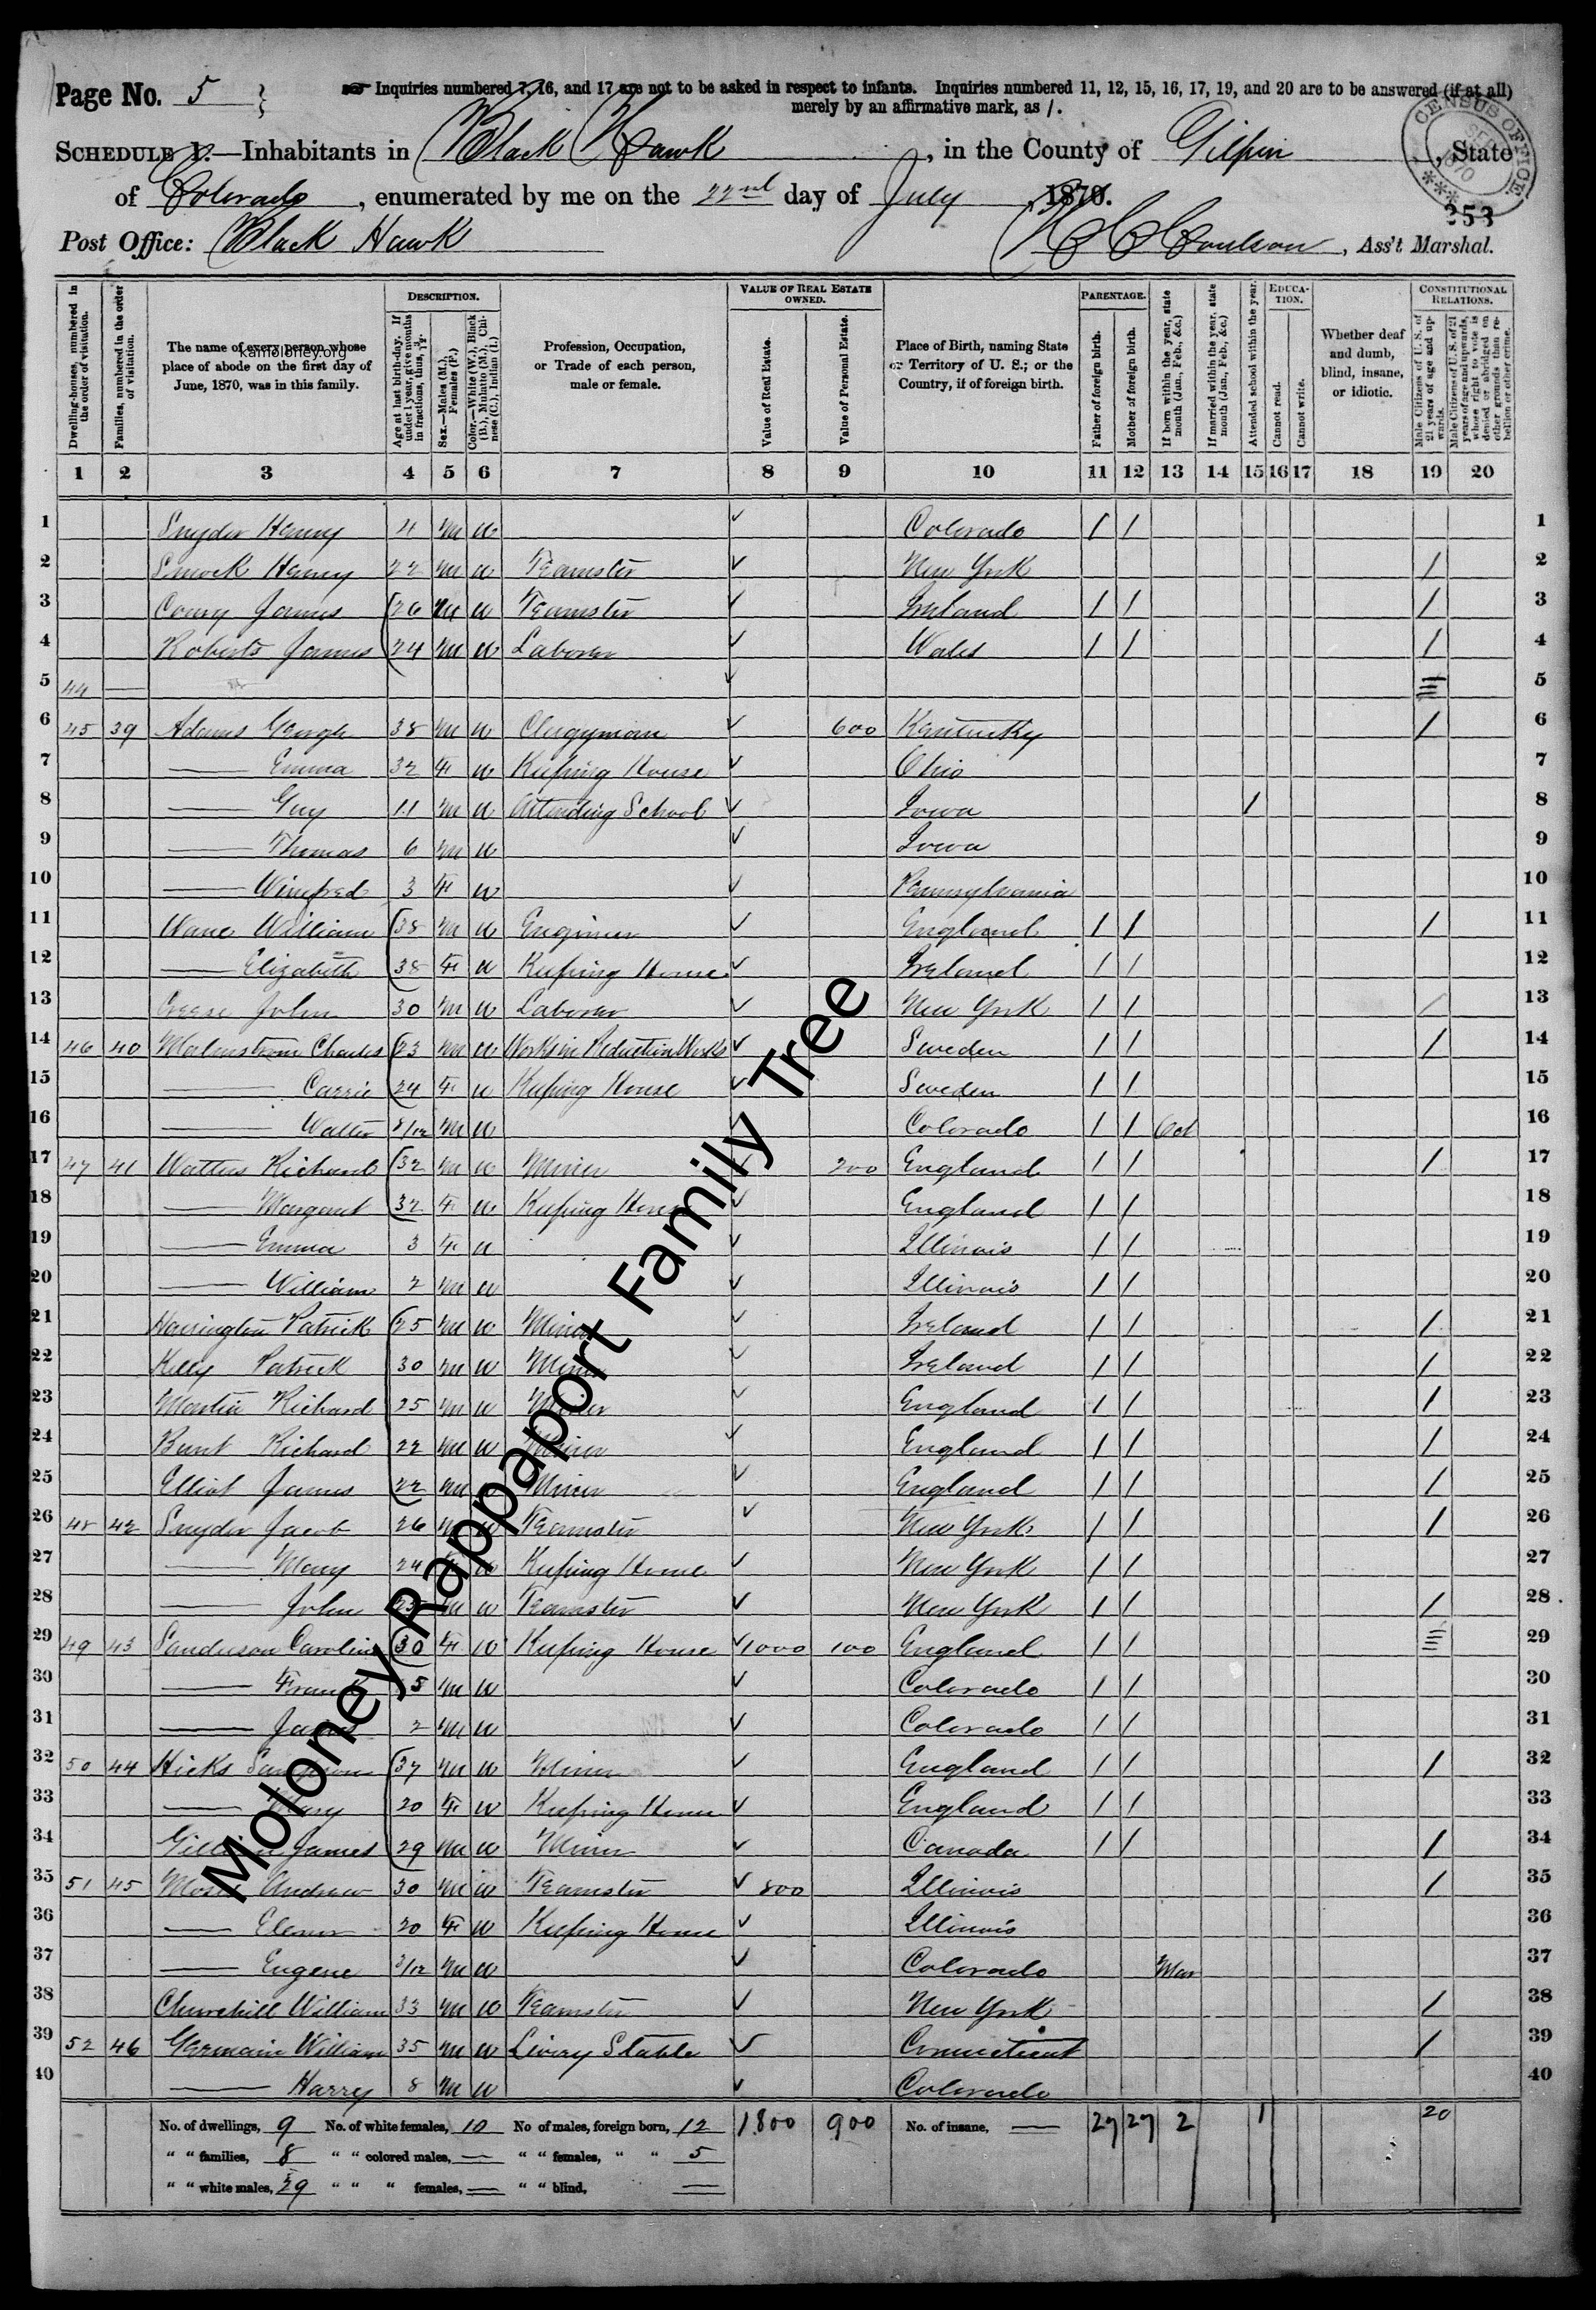 Page No. 5
☞ Inquiries numbered 7, 16, and 17 are not to be asked in respect to infants. Inquiries numbered 11, 12, 15, 16, 17, 19, and 20 are to be answered (if at all)
merely by an affirmative mark, as /.
CENSUS OFFICE 1870
SCHEDULE 1.—Inhabitants in Black Hawk, in the County of Gilpin, State
of Colorado, enumerated by me on the 22nd day of July, 1870.
353
Post Office: Black Hawk
Coulson, Ass't Marshal.
Dwelling-houses, numbered in the order of visitation.
Families, numbered in the order of visitation.
The name of every person whose place of abode on the first day of June, 1870, was in this family.
kamoloney.org
DESCRIPTION.
Age at last birth-day. If under 1 year, give months in fractions, thus, 3/12
Sex.—Males (M.), Females (F.)
Color.—White (W.), Black (B.), Mulatto (M.), Chinese (C.), Indian (I.)
Profession, Occupation, or Trade of each person, male or female.
VALUE OF REAL ESTATE OWNED.
Value of Real Estate.
Value of Personal Estate.
Place of Birth, naming State or Territory of U. S.; or the Country, if of foreign birth.
PARENTAGE.
Father of foreign birth.
Mother of foreign birth.
If born within the year, state month (Jan., Feb., &c.)
If married within the year, state month (Jan., Feb., &c.)
Attended school within the year.
EDUCATION.
Cannot read.
Cannot write.
Whether deaf and dumb, blind, insane, or idiotic.
CONSTITUTIONAL RELATIONS.
Male Citizens of U. S. of 21 years of age and upwards.
Male Citizens of U. S. of 21 years of age and upwards, whose right to vote is denied or abridged on other grounds than rebellion or other crime.
1 2 3 4 5 6 7 8 9 10 11 12 13 14 15 16 17 18 19 20
1 Snyder Henry 4 M W Colorado / / 1
2 Smock Henry 22 M W Teamster New York / 2
3 James 26 M W Teamster Ireland / / / 3
4 Roberts James 24 M W Laborer Wales / / / 4
5 44 — 5
6 45 39 Adams George 38 M W Clergyman 600 Kentucky / 6
7 — Emma 32 F W Keeping House Ohio 7
8 — Guy 11 M W Attending School Iowa / 8
9 — Thomas 6 M W Iowa 9
10 — Winifred 3 F W Pennsylvania 10
11 Ware William 38 M W Engineer England / / / 11
12 — Elizabeth 38 F W Keeping House Ireland / / 12
13 John 30 M W Laborer New York / / / 13
14 46 40 Malmstrom Charles 23 M W Works in Reduction Works Sweden / / / 14
15 — Carrie 24 F W Keeping House Sweden / / 15
16 — Walter 8/12 M W Colorado / / Oct 16
17 47 41 Watters Richard 32 M W Miner 200 England / / / 17
18 — Margaret 32 F W Keeping House England / / 18
19 — Emma 3 F W Illinois / / 19
20 — William 2 M W Illinois / / 20
21 Harrington Patrick 25 M W Miner Ireland / / / 21
22 Kelly Patrick 30 M W Miner Ireland / / / 22
23 Martin Richard 25 M W Miner England / / / 23
24 Bunt Richard 22 M W Miner England / / / 24
25 Elliot James 22 M W Miner England / / / 25
26 48 42 Snyder Jacob 26 M W Teamster New York / / / 26
27 — Mary 24 F W Keeping House New York / / 27
28 — John M W Teamster New York / / / 28
29 49 43 Sanderson Caroline 30 F W Keeping House 1000 100 England / / 29
30 — Frank 5 M W Colorado / / 30
31 — James 2 M W Colorado / / 31
32 50 44 Hicks 37 M W Miner England / / / 32
33 — Mary 20 F W Keeping House England / / 33
34 James 29 M W Miner Canada / / / 34
35 51 45 Andrew 30 M W Teamster 800 Illinois / 35
36 — Elenor 20 F W Keeping House Illinois 36
37 — Eugene 3/12 M W Colorado Mar 37
38 Churchill William 33 M W Teamster New York / 38
39 52 46 Germain William 35 M W Livery Stable Connecticut / 39
40 — Harry 8 M W Colorado 40
No. of dwellings, 9 No. of white females, 10 No of males, foreign born, 12 1,800 900 No. of insane, — 27 27 2 1 20
" " families, 8 " " colored males, — " " females, " " 5
" " white males, 29 " " " females, — " " blind, —
Moloney Rappaport Family Tree